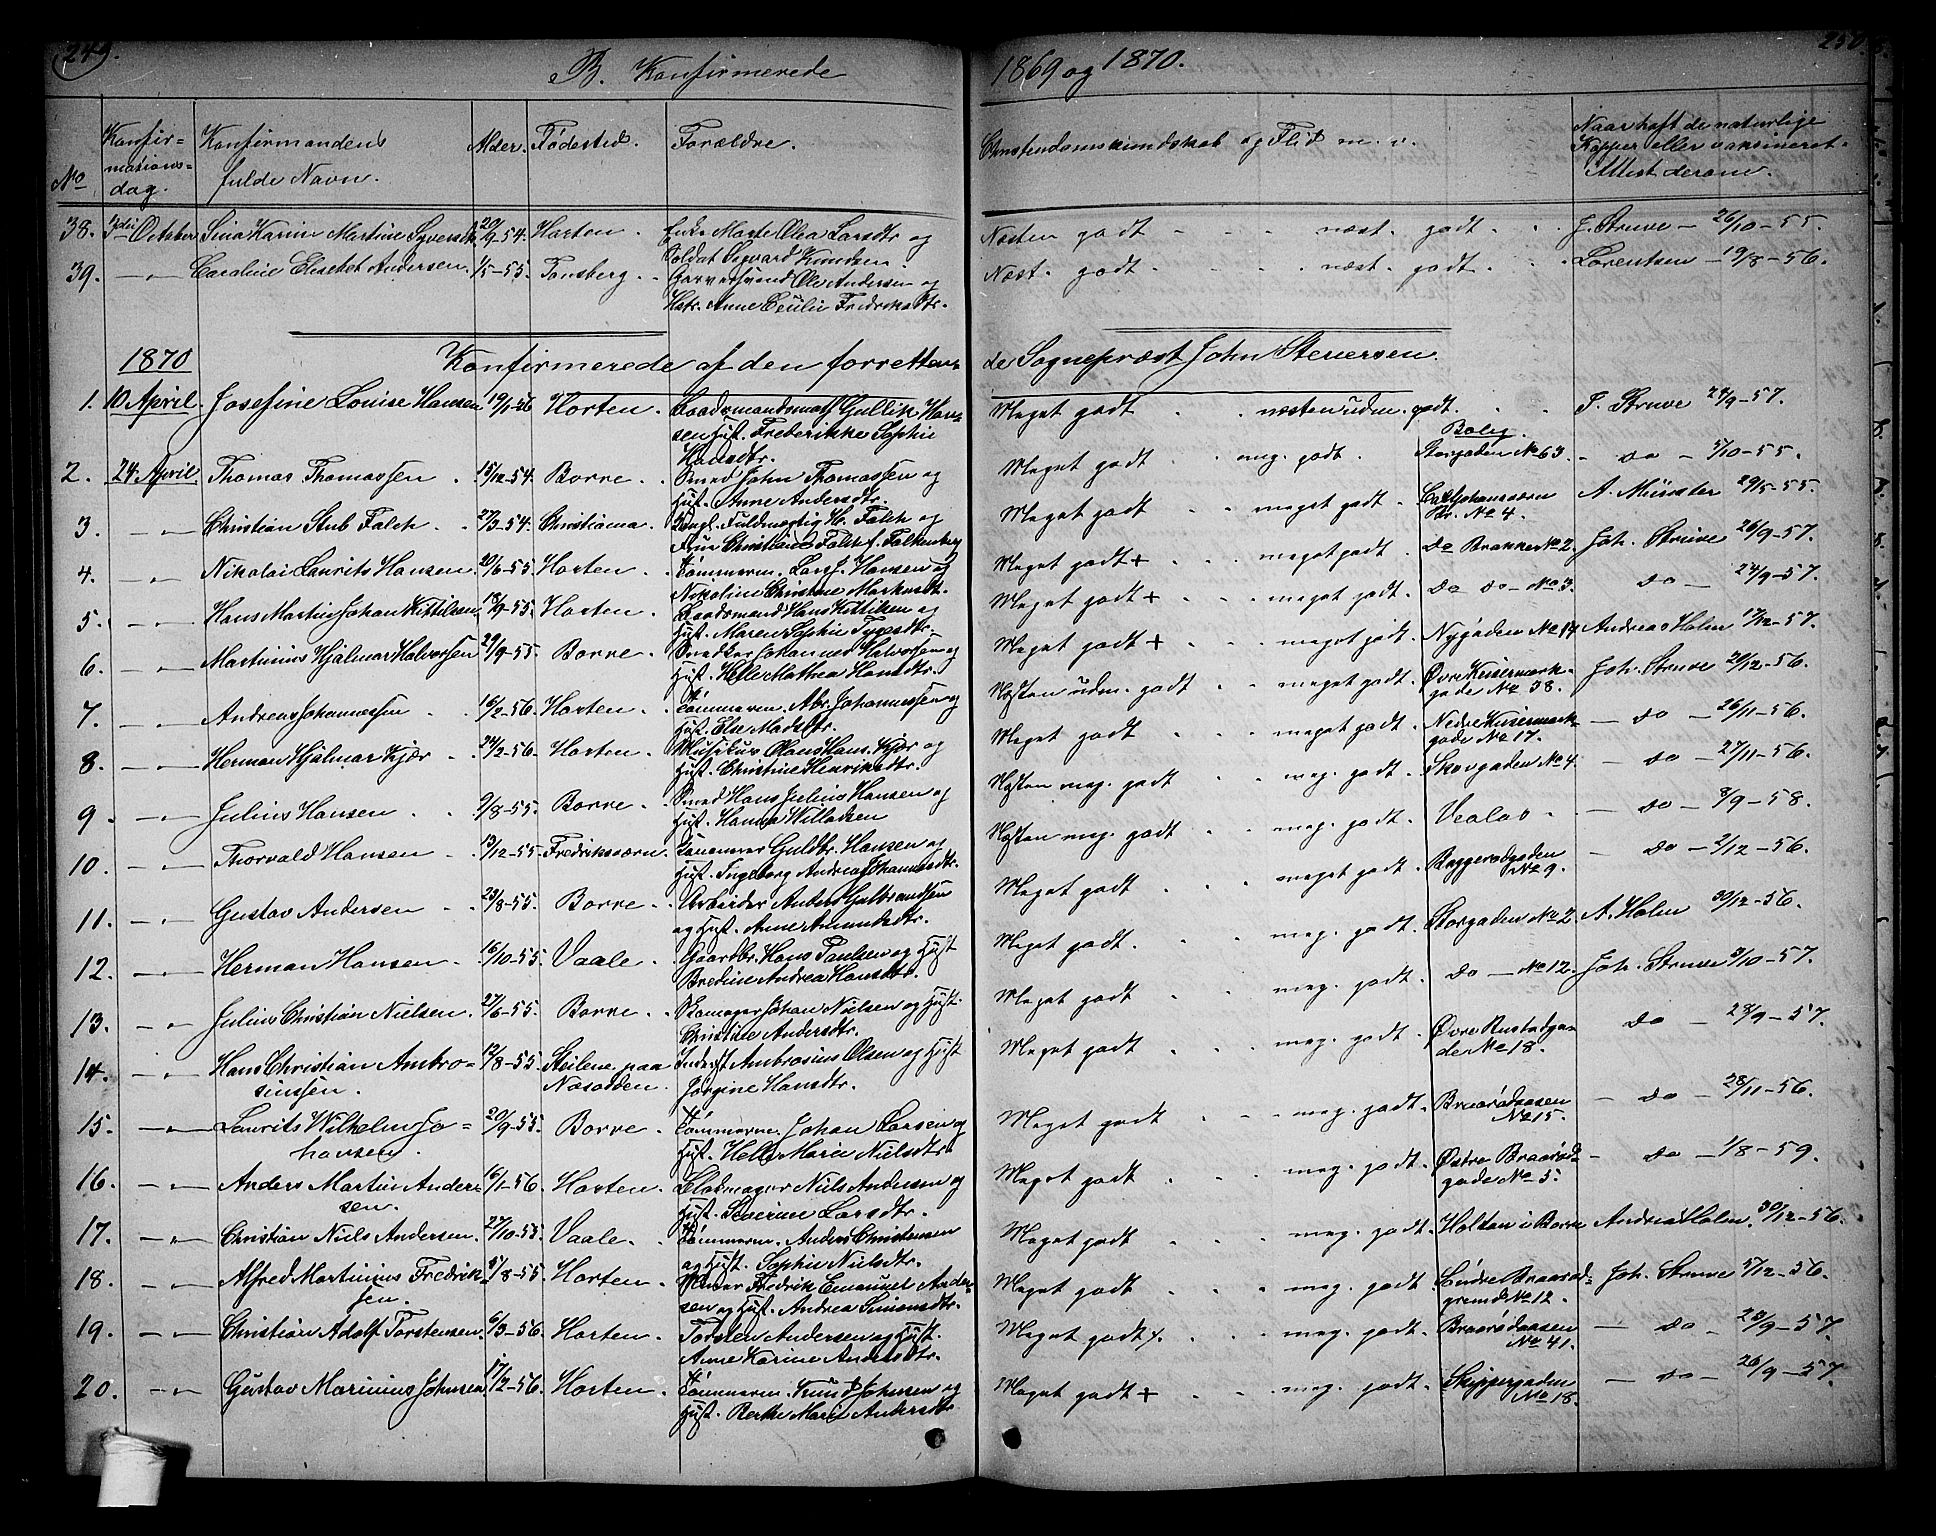 249.
B. Konfirmerede
1869 og 1870.
250.
No
Konfir=
mations=
dag.
Konfirmandens
fulde Navn.
Alder.
Fødested.
Forældre.
Christendomskundskab og Flid m. v.
Naar haft de naturlige
Kopper eller vaksineret.
Attest derom.
38. 3die October Sina Karine Martine Syversdtr 20/9-54. Horten. Marte Olea Larsdtr og
Soldat Sigvard Knudsen.
Næsten godt næst. godt. J. Struve - 26/10-55.
39. -"- Caroline Elisebet Andersen. 1/5-55. Tønsberg. Garversvend Ole Andersen og
Hstr. Anne Cecilie Fredriksdtr.
Næst. godt næst. godt Lorentsen - 19/8-56.
1870
Konfirmerede af den forretten=
de Sognepræst John Stenersen.
1. 10 April. Josefine Louise Hansen 19/1-56 Horten. Baadsmandsmat Gullik Han=
sen Hust. Frederikke Sophie
Hansdtr.
Meget godt næsten udm. godt. J. Struve 24/9-57.
Bolig.
2. 24. April Thomas Thomassen 15/12-54. Borre. Smed John Thomassen og
Hust. Anne Andersdtr.
Meget godt meg. godt. Storgaden No 63. - Do - 5/10-55.
3. -"- Christian Stub Falch. 27/3-54. Christiania. Fuldmægtig H. Falch og
Frue Christiane Falch f. Falkenberg
Meget godt meget godt Carljohansværn
Br. No 4. A. Münster 29/5-55.
4. " Nikolai Laurits Hansen. 20/6-55 Horten. Tømmerm. Lars J. Hansen og
Nikoline Christine Markusdt.
Meget godt + meget godt. Do Brakke No 2. Joh. Struve 26/9-57.
5. -"- Hans Martin Johan Kittilsen. 18/9-55. Horten. Baadsmand Hans Kittilsen og
Hust. Maren Sophie Tygesdtr.
Meget godt + meget godt. Do Do - No 3. Do - 24/9-57.
6. -"- Martinius Hjalmar Halvorsen 29/9-55. Borre. Johannes Halvorsen og
Hust. Helle Mathea Hansdtr.
Meget godt + meget godt. Nygaden No 14 Andreas Holm 17/12-57.
7. -"- Andreas Johannessen. 16/2-56. Horten. Tømmerm. Abr. Johannessen og
Hust. Else Madsdtr.
Næsten udm. godt meget godt. Øvre Keisermark=
gade No 38. Joh. Struve 20/12-56.
8. -"- Herman Hjalmar Kjær. 24/2-56. Horten. Musikus Hans Kjær og
Hust. Christine Henriksdtr.
Meget godt meget godt. Nedre Keisermark=
gade No 17. - Do - 26/11-56.
9. -"- Julius Hansen. 9/8-55. Borre. Smed Hans Julius Hansen og
Hust. Hanna Willadsen
Næsten meg. godt meg. godt. Skovgaden No 4. - Do - 27/11-56.
10. -"- Thorvald Hansen. 13/12-55. Fredriksværn. Guldbr. Hansen og
Hust. Ingeborg Andrea Johannesdtr.
Næsten meg. godt meg. godt. Vealøs. - Do - 8/9-58.
11. -"- Gustav Andersen. 23/8-55. Borre. Arbeider Anders Gulbrandsen
og Hust. Anne Amundsdtr.
Meget godt meget godt. Baggerødgaden
No 9. - Do - 2/12-56.
12. -"- Herman Hansen. 16/10-55. Vaale. Gaardbr. Hans Paulsen og Hust
Bredine Andrea Hansdtr.
Meget godt. meg. godt. Storgaden No 2. A. Holm 30/12-56.
13. -"- Julius Christian Nielsen. 27/6-55. Borre. Skomager Johan Nielsen og Hust.
Christine Andersdtr.
Meget godt meg. godt. Do - No 12. Joh. Struve 8/10-57.
14. -"- Hans Christian Ambro=
siussen. 12/8-55. Steilene paa
Næsodden. Inderst Ambrosius Olsen og Hust
Jørgine Hansdtr.
Meget godt meg. godt. Øvre Rustadgan
de No 18. Do - 28/9-57.
15. -"- Laurits Wilhelm Jo=
hansen. 20/9-55. Borre. Tømmerm. Johan Larsen og
Hust. Helle Maria Nielsdtr
Meget godt meg. godt. Braarødaasen
No 15. - Do - 28/11-56.
16. -"- Anders Martin Ander=
sen. 16/1-56. Horten. Bladmager Niels Andersen og
Hust. Severine Larsdtr.
Meget godt meg. godt. Østre Braarød=
gade No 5. - Do - 1/8-59.
17. -"- Christian Niels Andersen. 27/10-55. Vaale. Tømmerm. Anders Christensen
og Hust. Sophie Nielsdtr.
Meget godt meg. godt. Holtan i Borre Andreas Holm. 30/12-56.
18. -"- Alfred Martinius Fredrik=
sen. 5/8-55. Horten. Maler Fredrik Emanuel Ander=
sen og Hust. Andrea Simonsdtr.
Meget godt meg. godt. Braarød=
grend No 12. Joh. Struve 5/12-56.
19. -"- Christian Adolf Torstensen. 6/3-56. Horten. Torsten Andersen og Hust.
Anne Karine Andersdtr.
Meget godt meg. godt. Braarødaasen
No 41. - Do - 28/9-57.
20. -"- Gustav Marinius Johnsen. 17/2-56. Horten. Tømmerm. Knud Johnsen og
Hust. Berthe Marie Andersdtr
Meget godt + meg. godt. Skippergaden
No 18. - Do - 26/9-57.